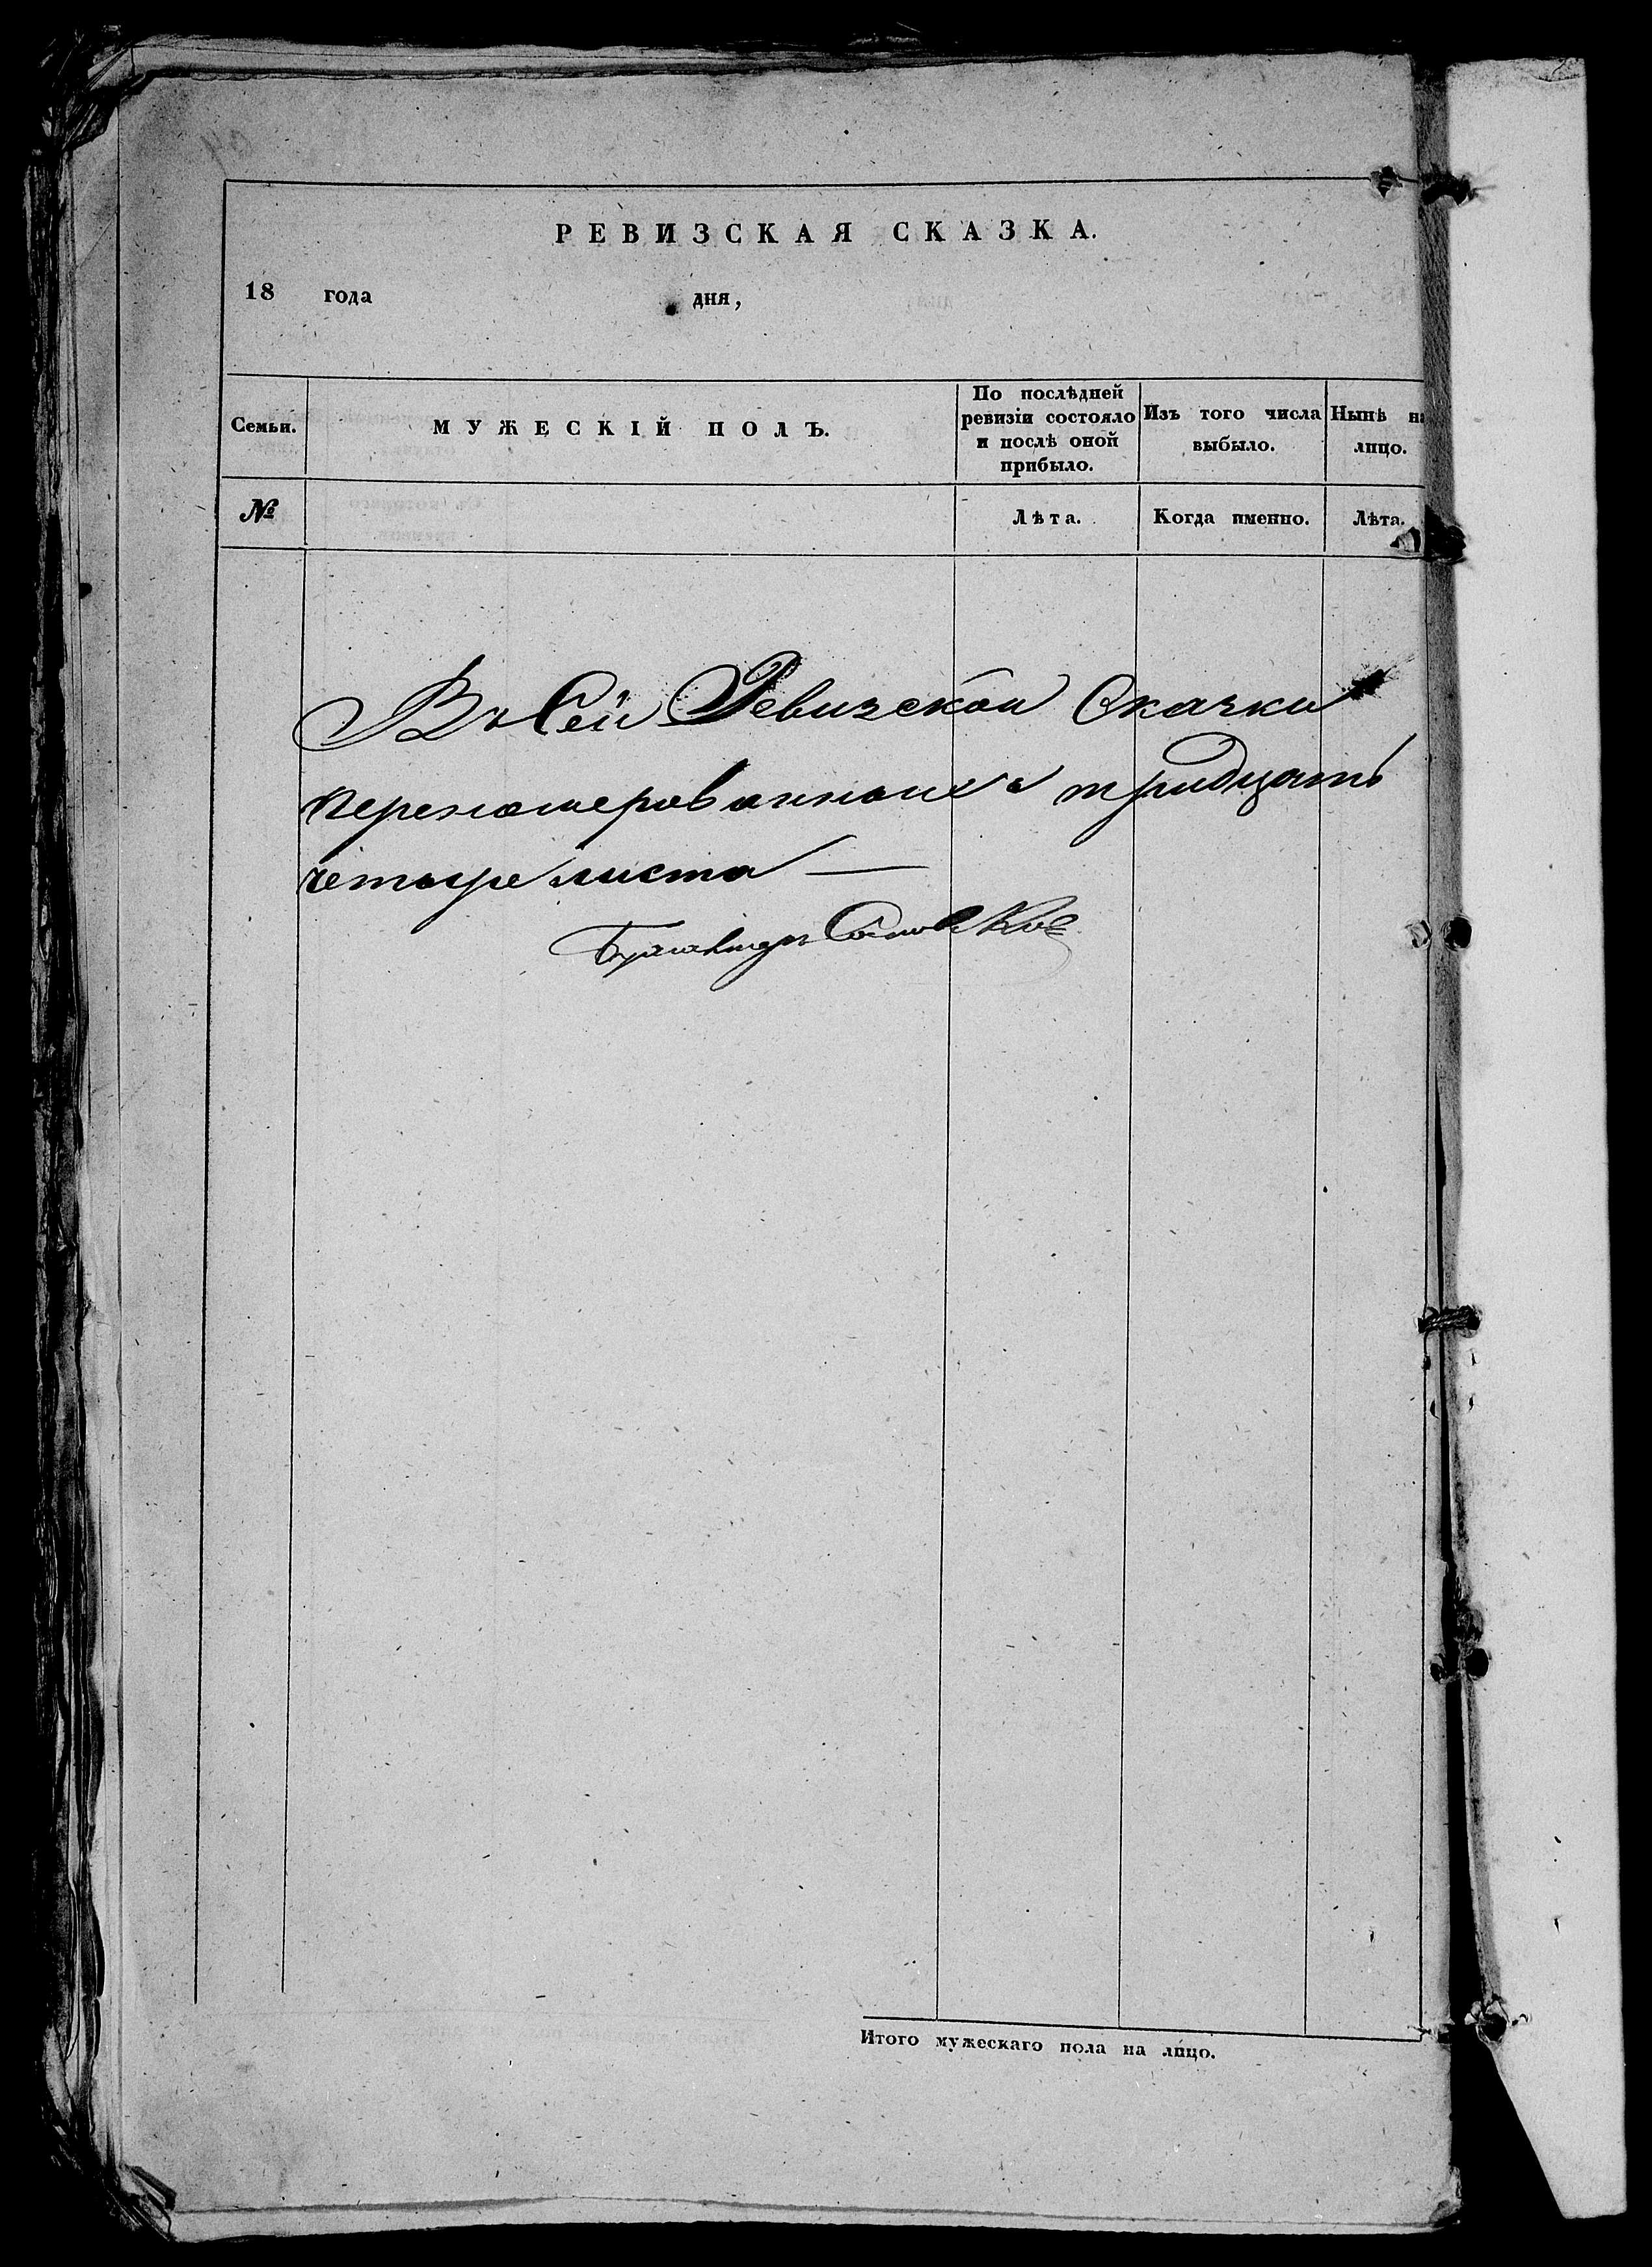 РЕВИЗСКАЯ СКАЗКА.
18 года дня,
Семьи.
МУЖЕСКІЙ ПОЛЪ.
По послѣдней
ревизіи состояло
и послѣ оной
прибыло.
Изъ того числа
выбыло.
Нынѣ на
лицо.
№
Лѣта.
Когда именно.
Лѣта.
Въ Сей Ревизской Скаски
переномерованныхъ тридцать
четыре листа —
Бухгалтеръ
Итого мужескаго пола на лицо.